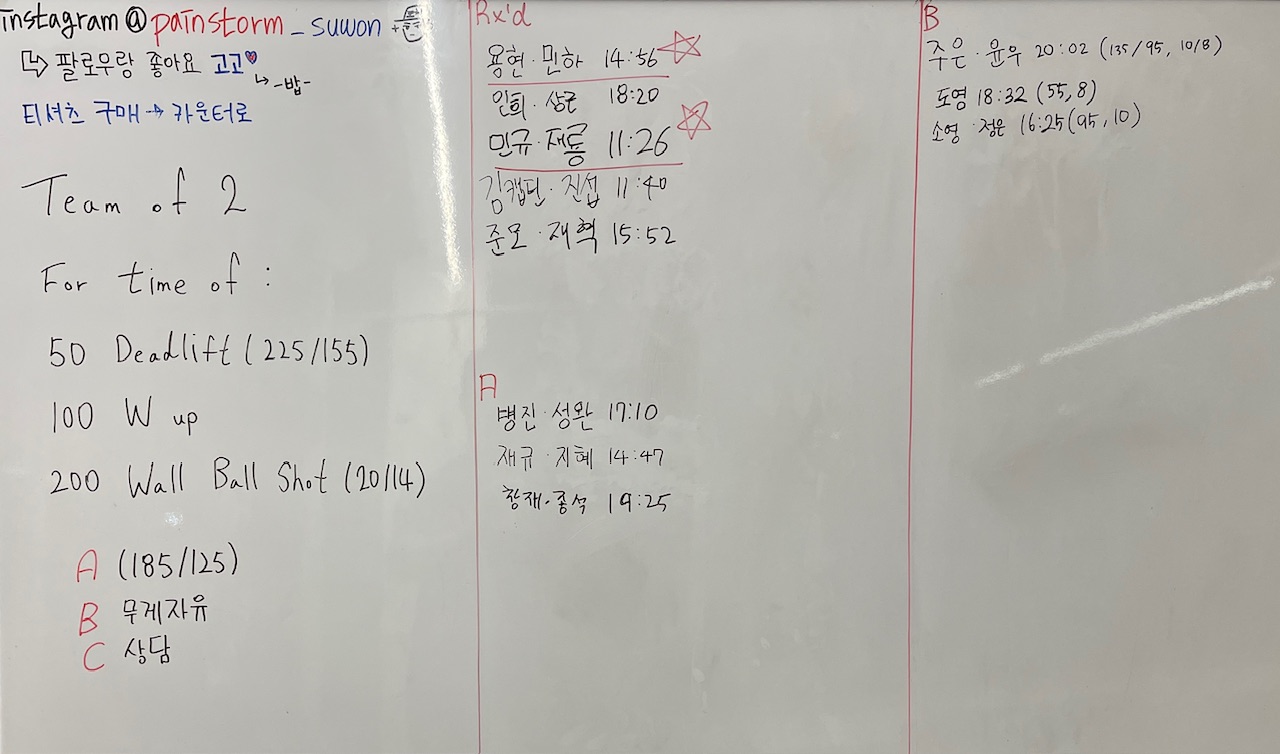 instagram@painstorm_suwon
팔로우랑 좋아요 고고
-밥-
티셔츠 구매→카운터로
Team of 2
For time of :
50 Deadlift (225/155)
100 W up
200 Wall Ball Shot (20/14)
A (185/125)
B 무게자유
C 상담
Rx'd
용현·민하 14:56
인희·상근 18:20
민규·재룡 11:26
김캡틴·진섭 11:40
준모·재혁 15:52
A
병진·성완 17:10
재규·지혜 14:47
창재·종석 19:25
B
주은·윤우 20:02 (135/95, 10/8)
도영 18:32 (55, 8)
소영·정은 16:25 (95, 10)